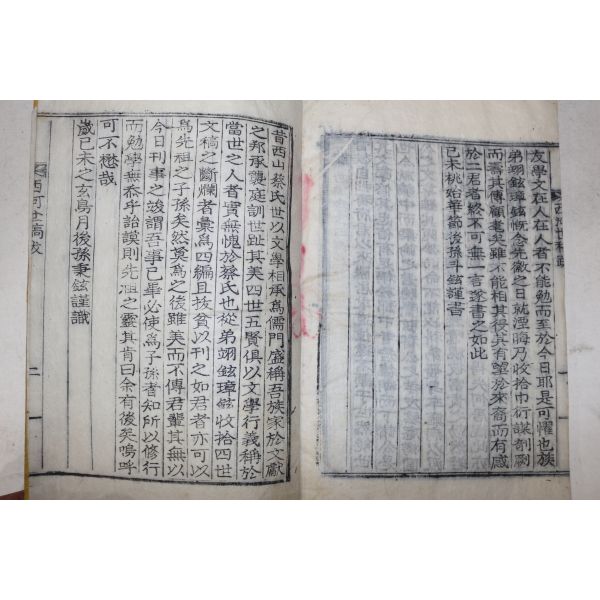 友學文在人在人者不能勉而至於今日耶是可懼也族
弟翊鉉璋鉉慨念先徽之日就湮晦乃收拾巾衍謀剞劂
而壽其傳顧耄矣雖不能相其役只有望於來裔而有感
於二君者終不可無一言遂書之如此
己未桃始華節後孫斗鉉謹書
昔西山蔡氏世以文學相承爲儒門盛稱吾族家於文獻
之邦承襲庭訓世趾其美四世五賢俱以文學行義稱於
當世之人者實無愧於蔡氏也從弟翊鉉璋鉉收拾四世
文稿之斷爛者彙爲四編且拔貧以刊之如君者亦可以
爲先祖之子孫矣然莫爲之後雖美而不傳君輩其無以
今日刊事之竣謂吾事已畢必使爲子孫者知所以修行
而勉學無忝乎詒謨則先祖之靈其肯曰余有後矣嗚呼
可不懋哉
歲己未之玄鳥月後孫秉鉉謹識
西河世稿跋
二